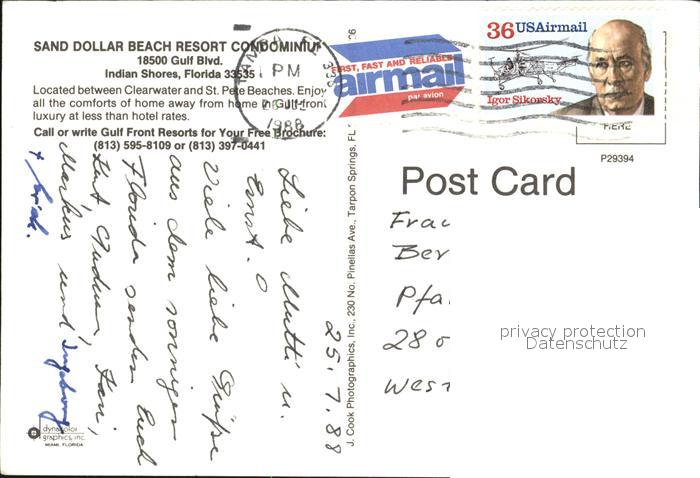 SAND DOLLAR BEACH RESORT CONDOMINIUM
18500 Gulf Blvd.
Indian Shores, Florida 33535
Located between Clearwater and St. Pete Beaches. Enjoy
all the comforts of home away from home in Gulf-front
luxury at less than hotel rates.
Call or write Gulf Front Resorts for Your Free Brochure:
(813) 595-8109 or (813) 397-0441
TAMPA, FL 335
PM
1988
FIRST, FAST AND RELIABLE
airmail
par avion
36 USAirmail
Igor Sikorsky
HERE
P29394
Post Card
25.7.88
Liebe Mutti u.
Ernst.
Viele liebe Grüße
aus dem sonnigen
Florida senden Euch
Markus und Ingeborg
+ Erich.
J. Cook Photographics, Inc., 230 No. Pinellas Ave., Tarpon Springs, FL
Frau
Ber
Pfa
280
West
privacy protection
Datenschutz
dynacolor
graphics, inc.
MIAMI, FLORIDA